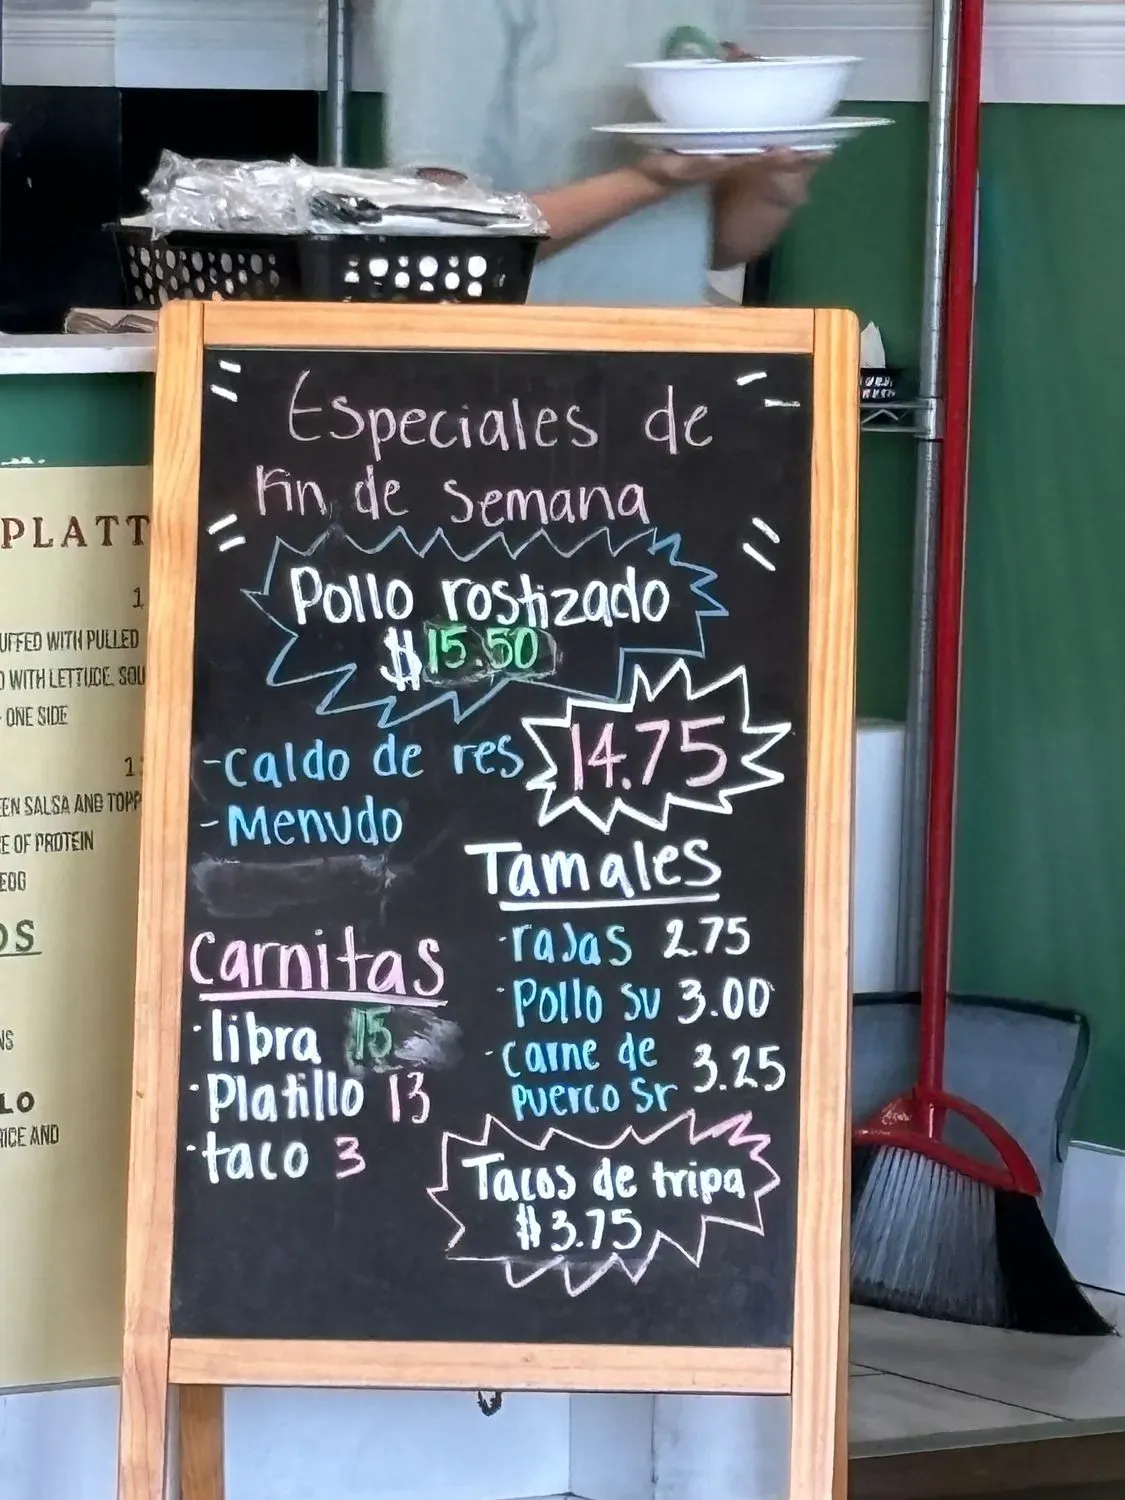 Especiales de
Fin de Semana
Pollo rostizado
$15.50
-Caldo de res
-Menudo
14.75
Carnitas
·libra 15
·Platillo 13
·taco 3
Tamales
·rajas 2.75
·Pollo Sv 3.00
·carne de
puerco Sr 3.25
Tacos de tripa
$3.75
PLATT
1
UFFED WITH PULLED
WITH LETTUCE. SOU
ONE SIDE
1
EEN SALSA AND TOPP
E OF PROTEIN
EGG
OS
NS
LO
RICE AND